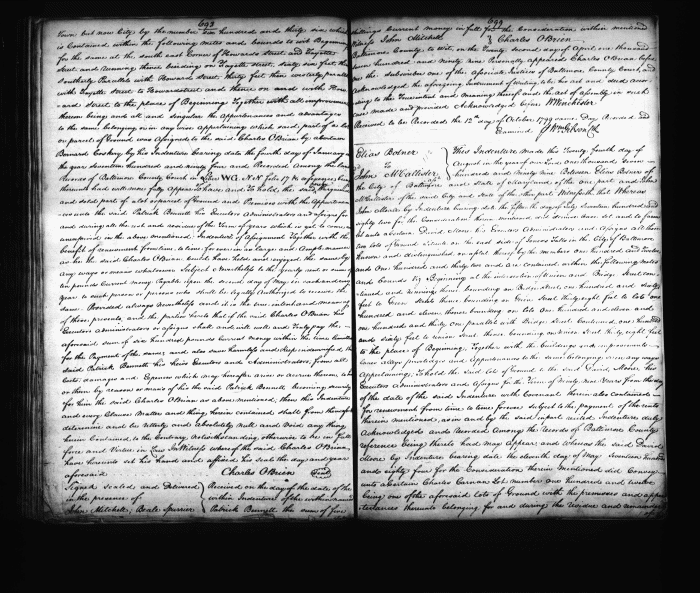 693
Town but now City by the number six hundred and thirty six which
is Contained within the following metes and bounds to wit Beginning
for the same at the south east corner of Howards Street and Fayette
Street and running thence binding on Fayette Street sixty six feet thence
Southerly Parallel with Howard Street thirty feet then westerly parallel
with Fayette Street to Howard Street and thence on and with How
ard Street to the place of Beginning Together with all improvements
thereon being and all and singular the appurtenances and advantages
to the same belonging or in any wise appertaining which said part of a lot
or parcel of Ground was assigned to the said Charles O'Brien by a certain
Bernard Coskery by his Indenture bearing date the fourth day of January in
the year seventeen hundred and ninety four and Recorded Among the land
Records of Baltimore County Court in Liber WG N. N folio 17 &c reference being
thereunto had will more fully Appear To have and To hold the said
and said part of a lot or parcel of Ground and Premises with the Appurtenan
ces unto the said Patrick Bennett his Executors Administrators and assigns for
and during all the rest and residue of the Term of years which is yet to come
unexpired in the above mentioned Indenture of Assignment Together with the
benefit of renewment from time to time for ever in as large and Ample manner
as he the said Charles O'Brien could have held and enjoyed the same by
any ways or means whatsoever Subject Nevertheless to the yearly rent or sum of
ten pounds Current money Payable upon the second day of May in each and every
year to such person or persons who shall be legally Authorized to receive the
same. Provided always Nevertheless and it is the true intent and meaning of
of these presents, and the parties hereto that if the said Charles O'Brien his
Executors administrators or assigns shall and will well and truly pay the
aforesaid sum of six hundred pounds Current money within the time limited
for the Payment of the same; and also save harmless and keep indemnified the
said Patrick Bennett his heirs Executors and Administrators, from all
Costs, damages and Expences which may hereafter arise or accrue thereon, to him
or them by reason or means of his the said Patrick Bennett becoming security
for him the said Charles O'Brien as above mentioned, then this Indenture
and every Clause Matter and thing herein contained shall from thenceforth
determine and be utterly and absolutely null and Void any thing
herein Contained to the Contrary Notwithstanding, otherwise to be in full
force and Virtue in Law In Witness whereof the said Charles O'Brien,
have hereunto set his hand and affixed his seal the day and year
aforesaid Charles O'Brien Seal
Signed sealed and Delivered
in the presence of
John Mitchell, Beale Spurrier
Received on the day of the date of the
within Indenture of the within named
Patrick Bennett the sum of five
694
shillings Current money in full for the Consideration within mentioned
Witness John Mitchell Charles O'Brien
Baltimore County to wit, on the Twenty second day of April one thousand
seven hundred and ninety nine Personally appeared Charles O'Brien before
me the subscriber one of the Associate Justices of Baltimore County Court, and
acknowledged the aforegoing Instrument of writing to be his act and deed accor
ding to the true intent and meaning thereof and the act of assembly in such
case made and provided Acknowledged before W Winchester
Received to be Recorded the 12th day of October 1799 same Day Recorded and
Examined Wm Gibson Clk
Elias Botner
To
John McCallister
This Indenture made this Twenty fourth day of
August in the year of our Lord one thousand seven
hundred and Ninety Nine Between Elias Botner of
the City of Baltimore and State of Maryland of the one part and John
McCallister of the same City and State of the other part. Witnesseth that Whereas
John Merrick by Indenture bearing date the fifth day of July seventeen hundred and
eighty two for the Consideration therein mentioned did demise lease set and to farm
let unto a certain David Moore his Executors Administrators and Assigns all them
two lots of Ground situate on the east side of Jones's Falls in the City of Baltimore
known and distinguished on a plat thereof by the number one hundred and Twelve
and One hundred and thirteen and are contained within the following metes
and bounds viz Beginning at the intersection of Green and Bridge Street con
tinued and running thence bounding on Bridge Street one hundred and sixty
feet to Green Street thence bounding on Green Street thirty eight feet to lots one
hundred and eleven thence bounding on lots one hundred and eleven and
one hundred and thirty one parallel with Bridge Street Continued, one hundred
and sixty feet to union Street thence bounding on union Street thirty eight feet
to the place of Beginning, Together with the buildings and improvements
ways alleys privileges and Appurtenances to the same belonging or in any ways
Appertaining, To hold the said lots of Ground to the said David Moore, his
Executors Administrators and Assigns for the Term of ninety nine Years from the day
of the date of the said Indenture with Covenant therein also contained
for renewment from time to time forever Subject to the payment of the rents
therein mentioned as in and by the said in part recited Indenture duly
Acknowledged and Recorded Among the Records of Baltimore County
reference being thereto had may Appear and whereas the said David
Moore by Indenture bearing date the eleventh day of May seventeen hundred
and eighty four for the Consideration therein Mentioned did Convey
unto a Certain Charles Carnan Lot number one hundred and twelve
being one of the aforesaid lots of Ground with the premises and appur
tenances thereunto belonging for and during the residue and remainder